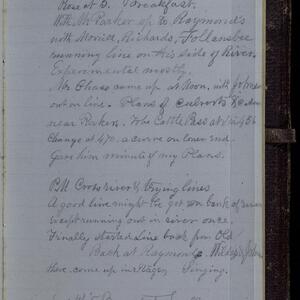 Rose at 5. Breakfast.
With Mr Parker up to Raymond's
with Morrill, Richards, Follansbee
running line on this side of River.
Experimental mostly.
Mr Chase came up at Noon, with
out on line. Plans of culverts &c
near Parker. The Cattle Pass at 456
Change at 470. a curve on lower End.
Gave him minute of my Plans.
P.M. Cross river & trying lines
A good line might be got on bank of river
except running out in river once.
Finally started line back from Old
Back at Raymonds.
there. came up in stages. Singing.